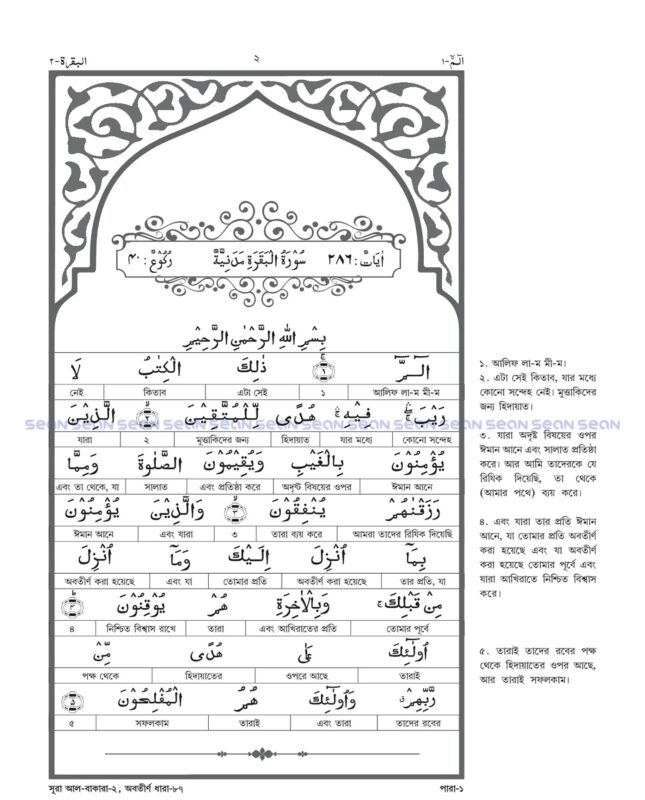 البقرة-٢ ٢ الٓمٓ-١
اٰیَاتُ : ٢٨٦ سُوْرَةُ الْبَقَرَةِ مَدَنِيَّةٌ رُكُوْعٌ : ۴۰
بِسْمِ اللّٰهِ الرَّحْمٰنِ الرَّحِيْمِ
الٓمّٓ ۚ ﴿١﴾ ذٰلِكَ الْكِتٰبُ لَا
আলিফ লা-ম মী-ম ১ এটা সেই কিতাব নেই
رَيْبَ ۛ فِيْهِ ۛ هُدًى لِّلْمُتَّقِيْنَ ﴿٢﴾ الَّذِيْنَ
কোনো সন্দেহ যার মধ্যে হিদায়াত মুত্তাকিদের জন্য ২ যারা
SEAN SEAN SEAN SEAN SEAN SEAN SEAN SEAN SEAN
يُؤْمِنُوْنَ بِالْغَيْبِ وَيُقِيْمُوْنَ الصَّلٰوةَ وَمِمَّا
ঈমান আনে অদৃষ্ট বিষয়ের ওপর এবং প্রতিষ্ঠা করে সালাত এবং তা থেকে, যা
رَزَقْنٰهُمْ يُنْفِقُوْنَ ﴿٣﴾ وَالَّذِيْنَ يُؤْمِنُوْنَ
আমরা তাদের রিযিক দিয়েছি তারা ব্যয় করে ৩ এবং যারা ঈমান আনে
بِمَآ اُنْزِلَ اِلَيْكَ وَمَآ اُنْزِلَ
তার প্রতি, যা অবতীর্ণ করা হয়েছে তোমার প্রতি এবং যা অবতীর্ণ করা হয়েছে
مِنْ قَبْلِكَ ۚ وَبِالْاٰخِرَةِ هُمْ يُوْقِنُوْنَ ﴿۴﴾
তোমার পূর্বে এবং আখিরাতের প্রতি তারা নিশ্চিত বিশ্বাস রাখে ৪
اُولٰٓئِكَ عَلٰى هُدًى مِّنْ
তারাই ওপরে আছে হিদায়াতের পক্ষ থেকে
رَّبِّهِمْ ۙ وَاُولٰٓئِكَ هُمُ الْمُفْلِحُوْنَ ﴿۵﴾
তাদের রবের এবং তারা তারাই সফলকাম ৫
১. আলিফ লা-ম মী-ম।
২. এটা সেই কিতাব, যার মধ্যে
কোনো সন্দেহ নেই। মুত্তাকিদের
জন্য হিদায়াত।
৩. যারা অদৃষ্ট বিষয়ের ওপর
ঈমান আনে এবং সালাত প্রতিষ্ঠা
করে। আর আমি তাদেরকে যে
রিযিক দিয়েছি, তা থেকে
(আমার পথে) ব্যয় করে।
৪. এবং যারা তার প্রতি ঈমান
আনে, যা তোমার প্রতি অবতীর্ণ
করা হয়েছে এবং যা অবতীর্ণ
করা হয়েছে তোমার পূর্বে এবং
যারা আখিরাতে নিশ্চিত বিশ্বাস
করে।
৫. তারাই তাদের রবের পক্ষ
থেকে হিদায়াতের ওপর আছে,
আর তারাই সফলকাম।
সূরা আল-বাকারা-২, অবতীর্ণ ধারা-৮৭ পারা-১